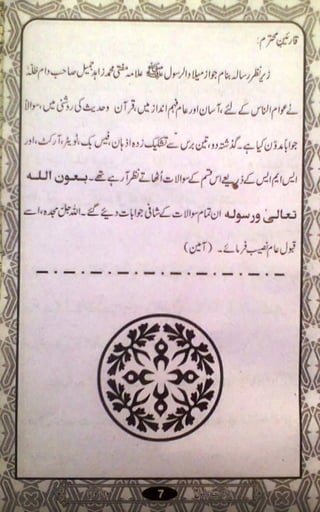 قارئین محترم:
زیر نظر رسالہ بنام جواز میلاد الرسول ﷺ علامہ مفتی محمد زاہد جمیل صاحب دام ظلہٗ
نے عوام الناس کے لئے، آسان اور عام فہم انداز میں، قرآن وحدیث کی روشنی میں، سوالاً
جواباً مدوّن کیا ہے۔ گذشتہ دو، تین برس سے تشکیک زدہ اذہان، فیس بک، ٹویٹر، آرکٹ، اور
ایس ایم ایس کے ذریعے اس قسم کے سوالات اُٹھاتے نظر آرہے تھے۔ بعون اللہ
تعالیٰ ورسولہ ان تمام سوالات کے شافی جوابات دیئے گئے۔ اللہ جل مجدہ، اسے
قبول عام نصیب فرمائے۔ (آمین)
7